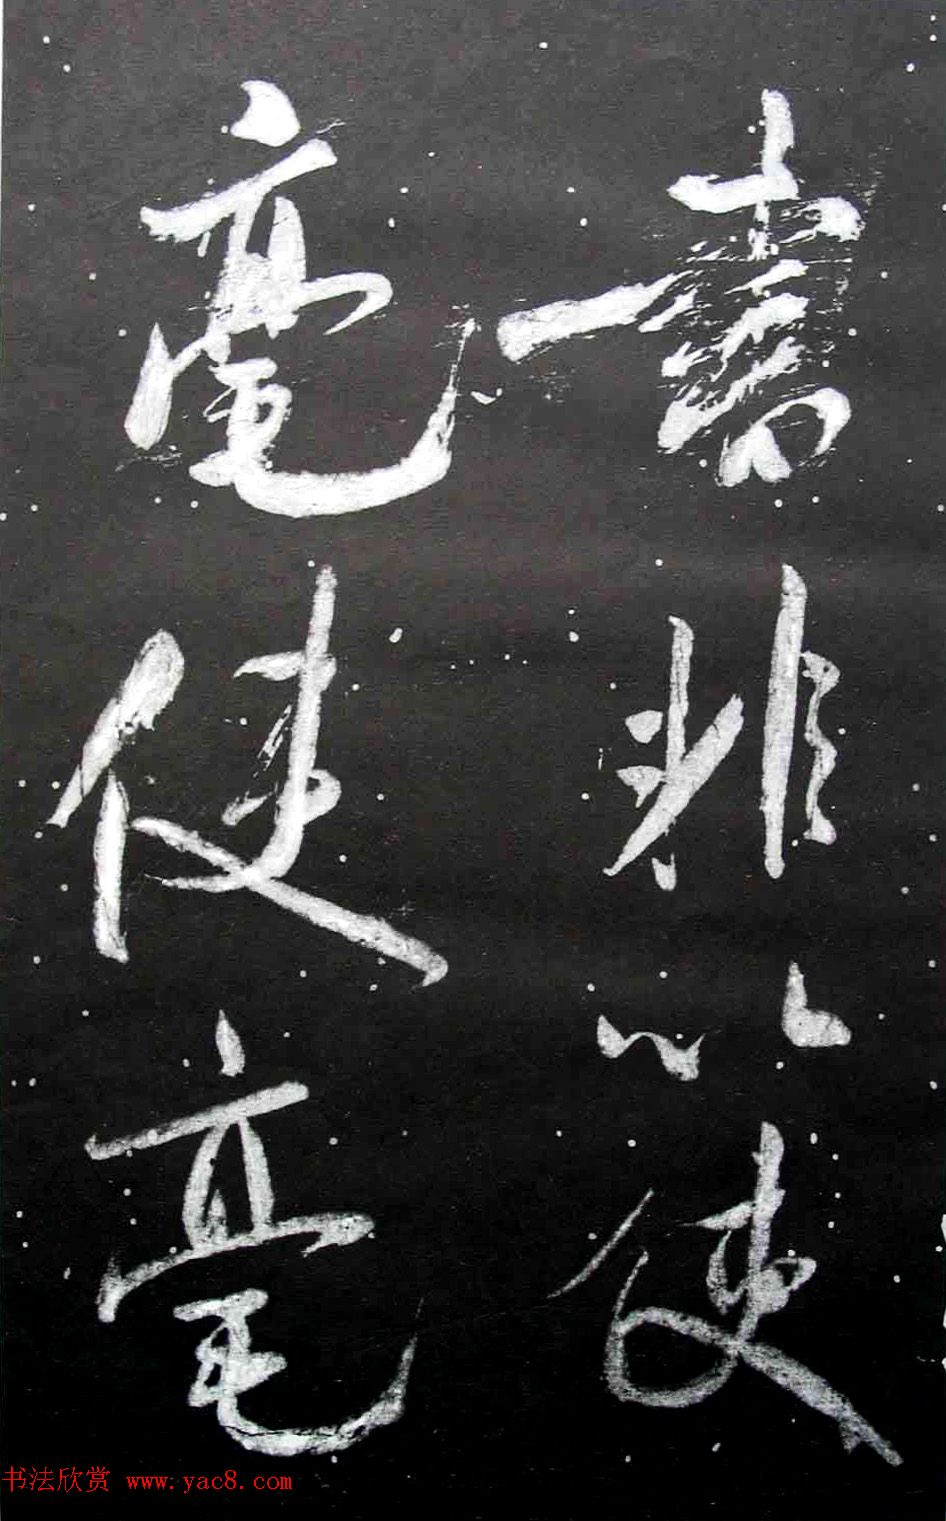 書非以使
毫使毫
书法欣赏 www.yac8.com